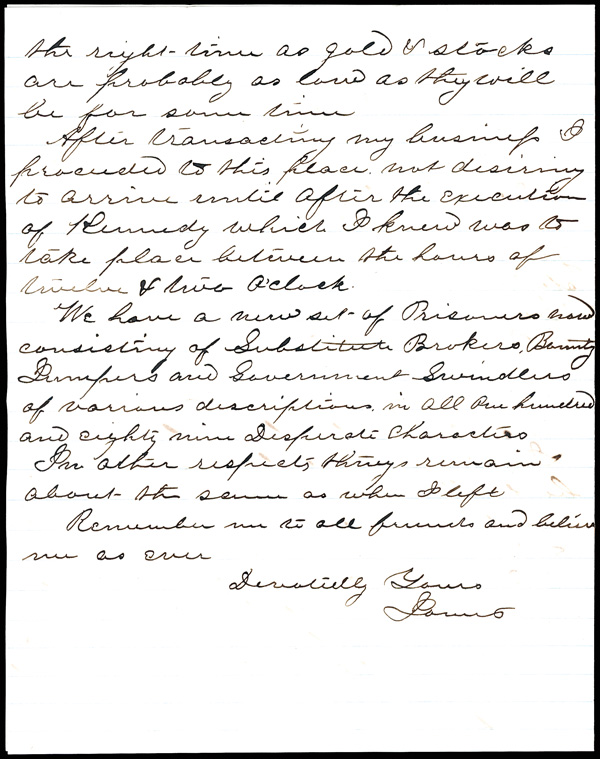 the right time as gold & stocks
are probably as low as they will
be for some time
After transacting my business I
proceeded to this place. not desiring
to arrive until after the execution
of Kennedy which I knew was to
take place between the hours of
twelve & two O'clock.
We have a new set of Prisoners now
consisting of Substitute Brokers, Bounty
Jumpers and Government Swindlers
of various descriptions, in all One hundred
and eighty nine Desperate Characters
In other respects things remain
about the same as when I left
Remember me to all friends and believe
me as ever
Devotedly Yours